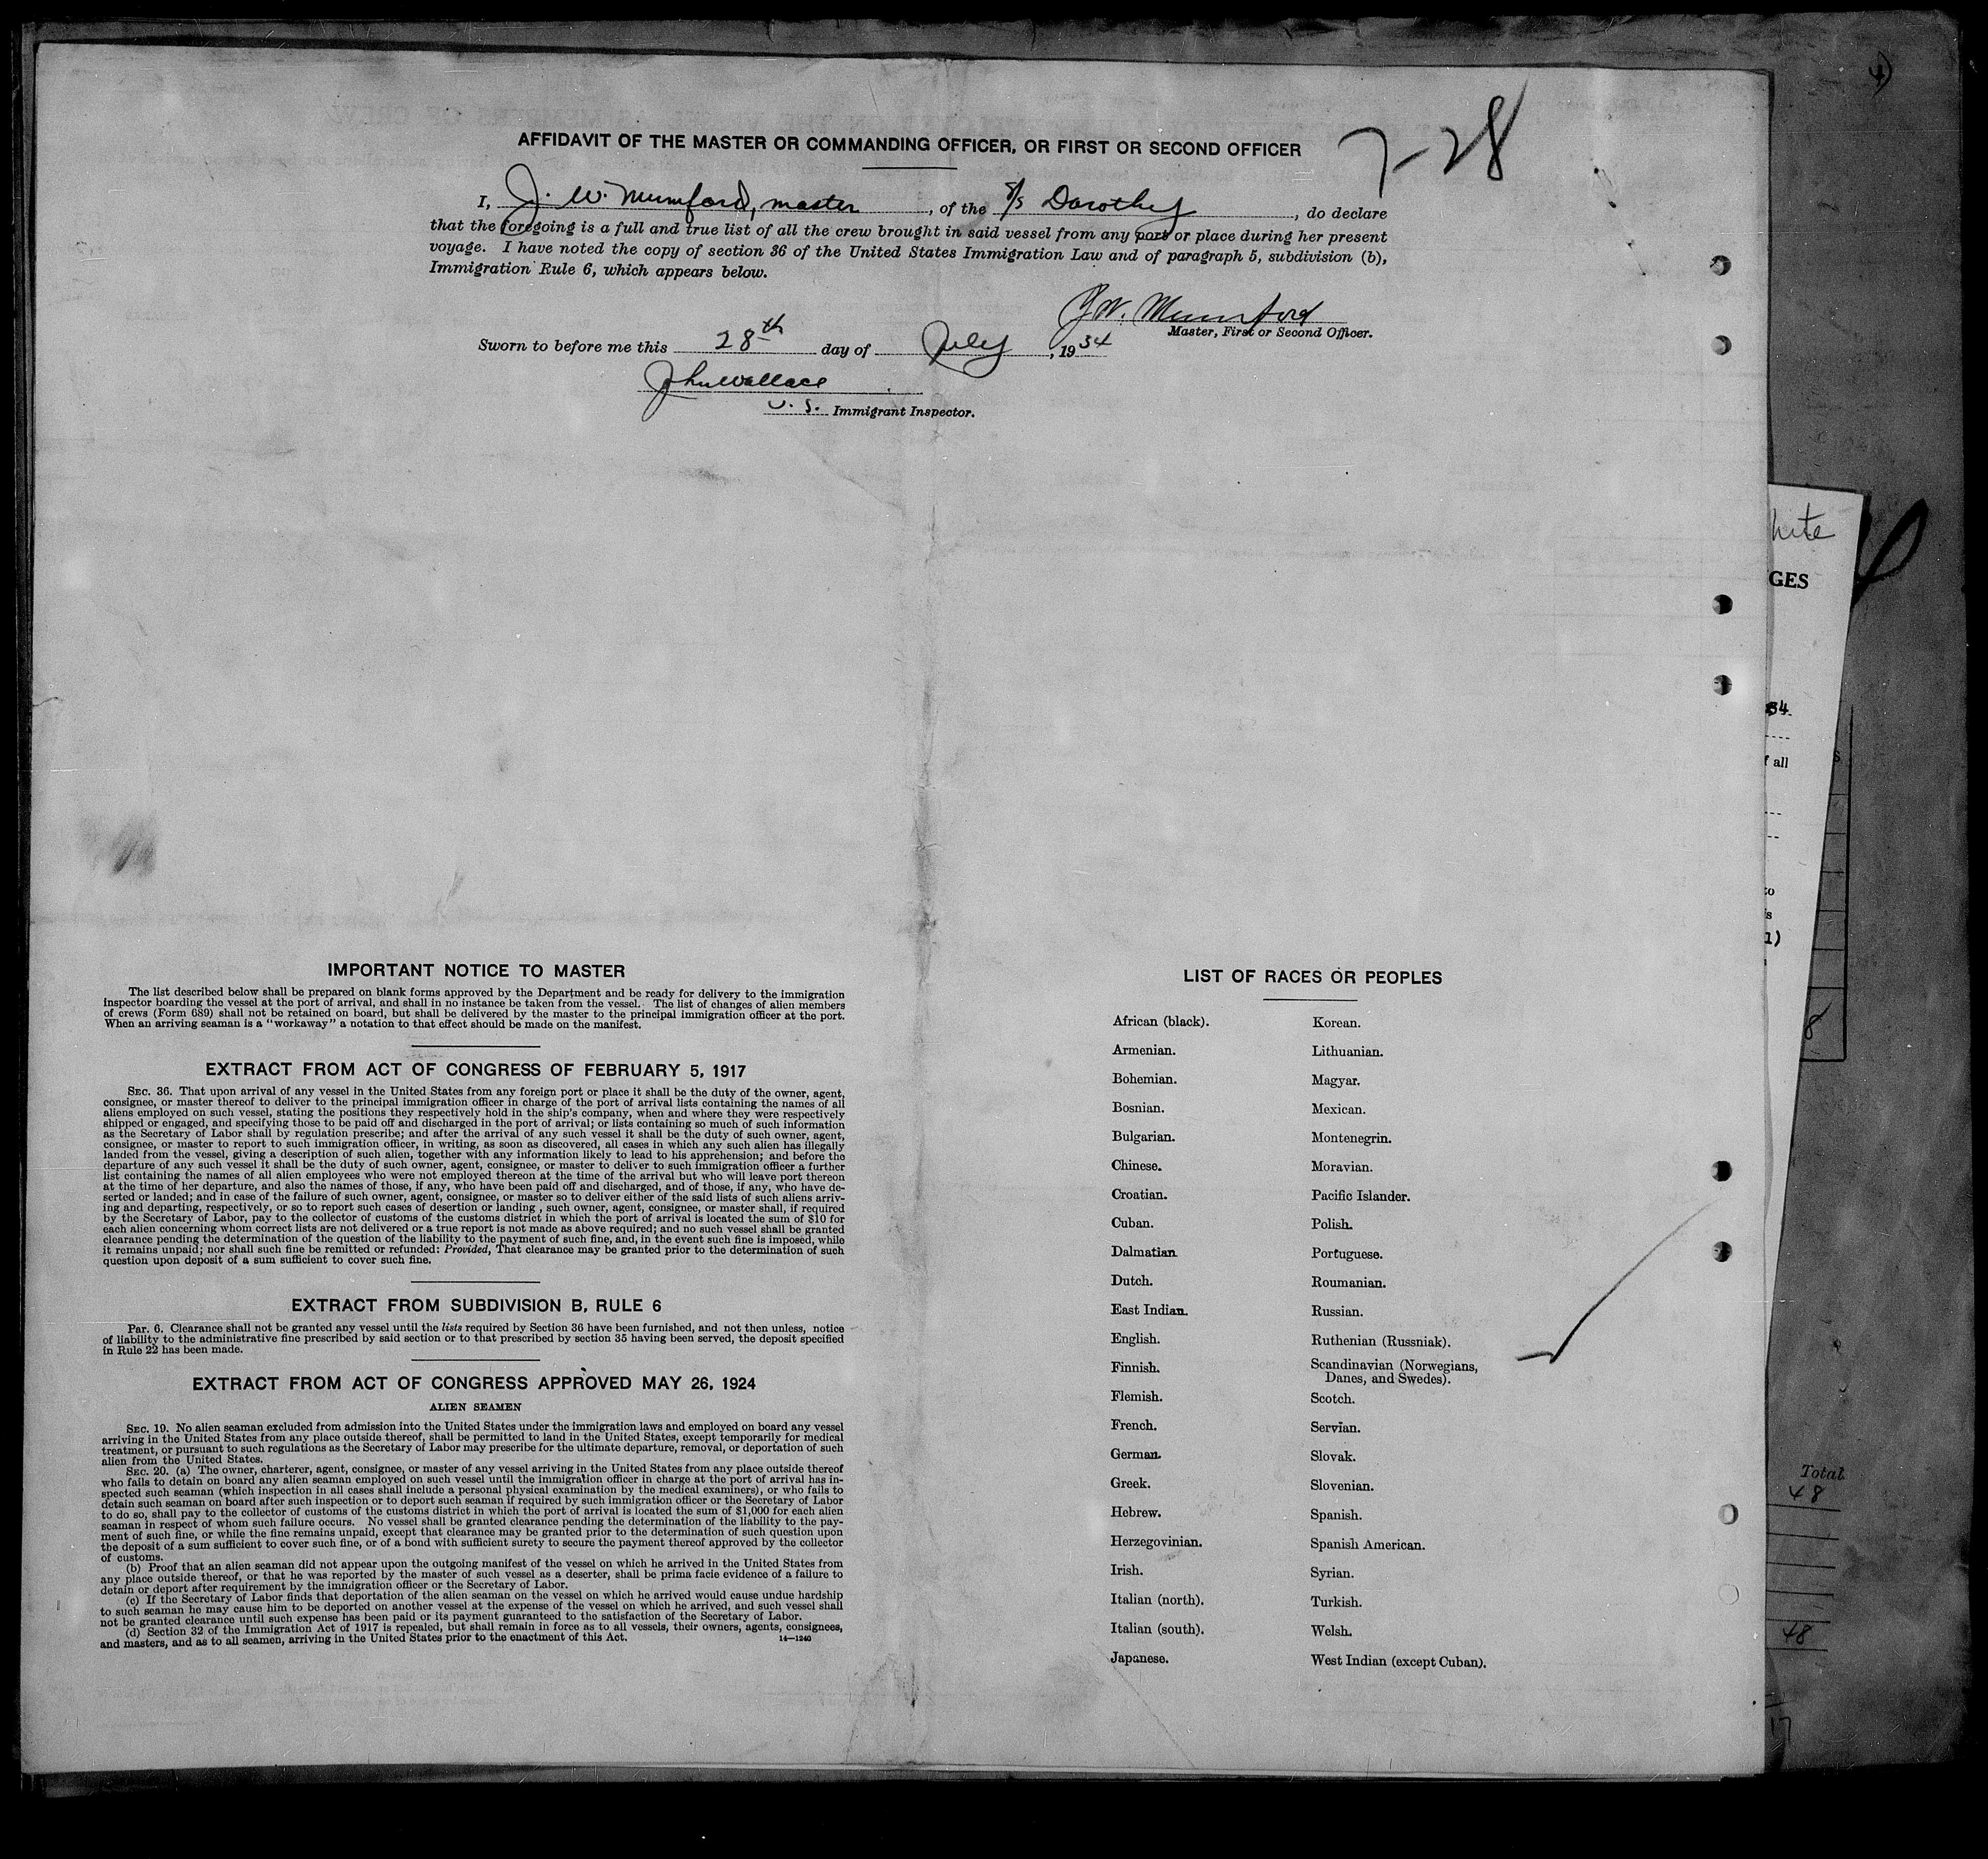 4)
7-28
AFFIDAVIT OF THE MASTER OR COMMANDING OFFICER, OR FIRST OR SECOND OFFICER
I, J. W. Mumford, master, of the S/S Dorothy, do declare
that the foregoing is a full and true list of all the crew brought in said vessel from any port or place during her present
voyage. I have noted the copy of section 36 of the United States Immigration Law and of paragraph 5, subdivision (b),
Immigration Rule 6, which appears below.
J. W. Mumford
Master, First or Second Officer.
Sworn to before me this 28th day of July, 1934
John Wallace
U. S. Immigrant Inspector.
hite
GES
34
f all
to
s
1)
8
IMPORTANT NOTICE TO MASTER
The list described below shall be prepared on blank forms approved by the Department and be ready for delivery to the immigration
inspector boarding the vessel at the port of arrival, and shall in no instance be taken from the vessel. The list of changes of alien members
of crews (Form 689) shall not be retained on board, but shall be delivered by the master to the principal immigration officer at the port.
When an arriving seaman is a "workaway" a notation to that effect should be made on the manifest.
EXTRACT FROM ACT OF CONGRESS OF FEBRUARY 5, 1917
SEC. 36. That upon arrival of any vessel in the United States from any foreign port or place it shall be the duty of the owner, agent,
consignee, or master thereof to deliver to the principal immigration officer in charge of the port of arrival lists containing the names of all
aliens employed on such vessel, stating the positions they respectively hold in the ship's company, when and where they were respectively
shipped or engaged, and specifying those to be paid off and discharged in the port of arrival; or lists containing so much of such information
as the Secretary of Labor shall by regulation prescribe; and after the arrival of any such vessel it shall be the duty of such owner, agent,
consignee, or master to report to such immigration officer, in writing, as soon as discovered, all cases in which any such alien has illegally
landed from the vessel, giving a description of such alien, together with any information likely to lead to his apprehension; and before the
departure of any such vessel it shall be the duty of such owner, agent, consignee, or master to deliver to such immigration officer a further
list containing the names of all alien employees who were not employed thereon at the time of the arrival but who will leave port thereon
at the time of her departure, and also the names of those, if any, who have been paid off and discharged, and of those, if any, who have de-
serted or landed; and in case of the failure of such owner, agent, consignee, or master so to deliver either of the said lists of such aliens arriv-
ing and departing, respectively, or so to report such cases of desertion or landing , such owner, agent, consignee, or master, shall, if required
by the Secretary of Labor, pay to the collector of customs of the customs district in which the port of arrival is located the sum of $10 for
each alien concerning whom correct lists are not delivered or a true report is not made as above required; and no such vessel shall be granted
clearance pending the determination of the question of the liability to the payment of such fine, and, in the event such fine is imposed, while
it remains unpaid; nor shall such fine be remitted or refunded: Provided, That clearance may be granted prior to the determination of such
question upon deposit of a sum sufficient to cover such fine.
EXTRACT FROM SUBDIVISION B, RULE 6
Par. 6. Clearance shall not be granted any vessel until the lists required by Section 36 have been furnished, and not then unless, notice
of liability to the administrative fine prescribed by said section or to that prescribed by section 35 having been served, the deposit specified
in Rule 22 has been made.
EXTRACT FROM ACT OF CONGRESS APPROVED MAY 26, 1924
ALIEN SEAMEN
SEC. 19. No alien seaman excluded from admission into the United States under the immigration laws and employed on board any vessel
arriving in the United States from any place outside thereof, shall be permitted to land in the United States, except temporarily for medical
treatment, or pursuant to such regulations as the Secretary of Labor may prescribe for the ultimate departure, removal, or deportation of such
alien from the United States.
SEC. 20. (a) The owner, charterer, agent, consignee, or master of any vessel arriving in the United States from any place outside thereof
who fails to detain on board any alien seaman employed on such vessel until the immigration officer in charge at the port of arrival has in-
spected such seaman (which inspection in all cases shall include a personal physical examination by the medical examiners), or who fails to
detain such seaman on board after such inspection or to deport such seaman if required by such immigration officer or the Secretary of Labor
to do so, shall pay to the collector of customs of the customs district in which the port of arrival is located the sum of $1,000 for each alien
seaman in respect of whom such failure occurs. No vessel shall be granted clearance pending the determination of the liability to the pay-
ment of such fine, or while the fine remains unpaid, except that clearance may be granted prior to the determination of such question upon
the deposit of a sum sufficient to cover such fine, or of a bond with sufficient surety to secure the payment thereof approved by the collector
of customs.
(b) Proof that an alien seaman did not appear upon the outgoing manifest of the vessel on which he arrived in the United States from
any place outside thereof, or that he was reported by the master of such vessel as a deserter, shall be prima facie evidence of a failure to
detain or deport after requirement by the immigration officer or the Secretary of Labor.
(c) If the Secretary of Labor finds that deportation of the alien seaman on the vessel on which he arrived would cause undue hardship
to such seaman he may cause him to be deported on another vessel at the expense of the vessel on which he arrived, and such vessel shall
not be granted clearance until such expense has been paid or its payment guaranteed to the satisfaction of the Secretary of Labor.
(d) Section 32 of the Immigration Act of 1917 is repealed, but shall remain in force as to all vessels, their owners, agents, consignees,
and masters, and as to all seamen, arriving in the United States prior to the enactment of this Act. 14—1240
LIST OF RACES OR PEOPLES
African (black). Korean.
Armenian. Lithuanian.
Bohemian. Magyar.
Bosnian. Mexican.
Bulgarian. Montenegrin.
Chinese. Moravian.
Croatian. Pacific Islander.
Cuban. Polish.
Dalmatian Portuguese.
Dutch. Roumanian.
East Indian. Russian.
English. Ruthenian (Russniak).
Finnish. Scandinavian (Norwegians,
Danes, and Swedes).
Flemish. Scotch.
French. Servian.
German. Slovak.
Greek. Slovenian.
Hebrew. Spanish.
Herzegovinian. Spanish American.
Irish. Syrian.
Italian (north). Turkish.
Italian (south). Welsh.
Japanese. West Indian (except Cuban).
Total
48
48
17